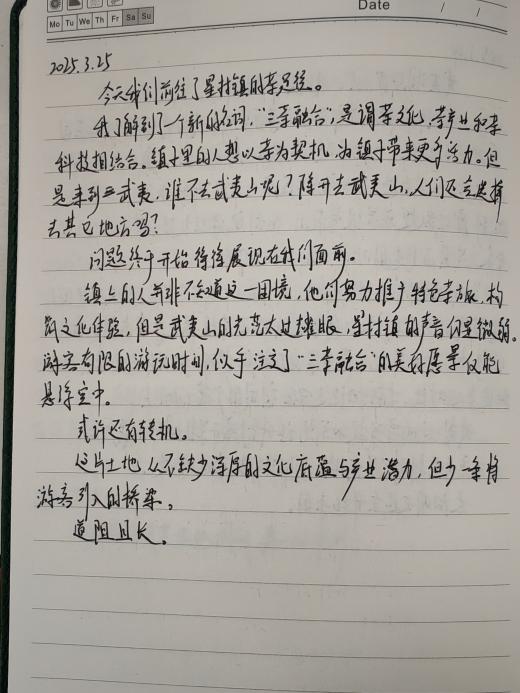 Date / /
Mo Tu We Th Fr Sa Su
2025.3.25
今天我们前往了星村镇的茶足径。
我了解到了一个新的名词，“三茶融合”，是谓茶文化、茶产业和茶
科技相结合。镇子里的人想以茶为契机，为镇子带来更多活力。但
是来到武夷，谁不去武夷山呢？除开去武夷山，人们还会选择
去其它地方吗？
问题终于开始徐徐展现在我们面前。
镇上的人并非不知道这一困境，他们努力推广特色茶旅、构
筑文化体验，但是武夷山的光芒太过耀眼，星村镇的声音仍显微弱。
游客有限的游玩时间，似乎注定了“三茶融合”的美好愿景仅能
悬浮空中。
或许还有转机。
这片土地从不缺少深厚的文化底蕴与产业潜力，但少一条将
游客引入的桥梁。
道阻且长。